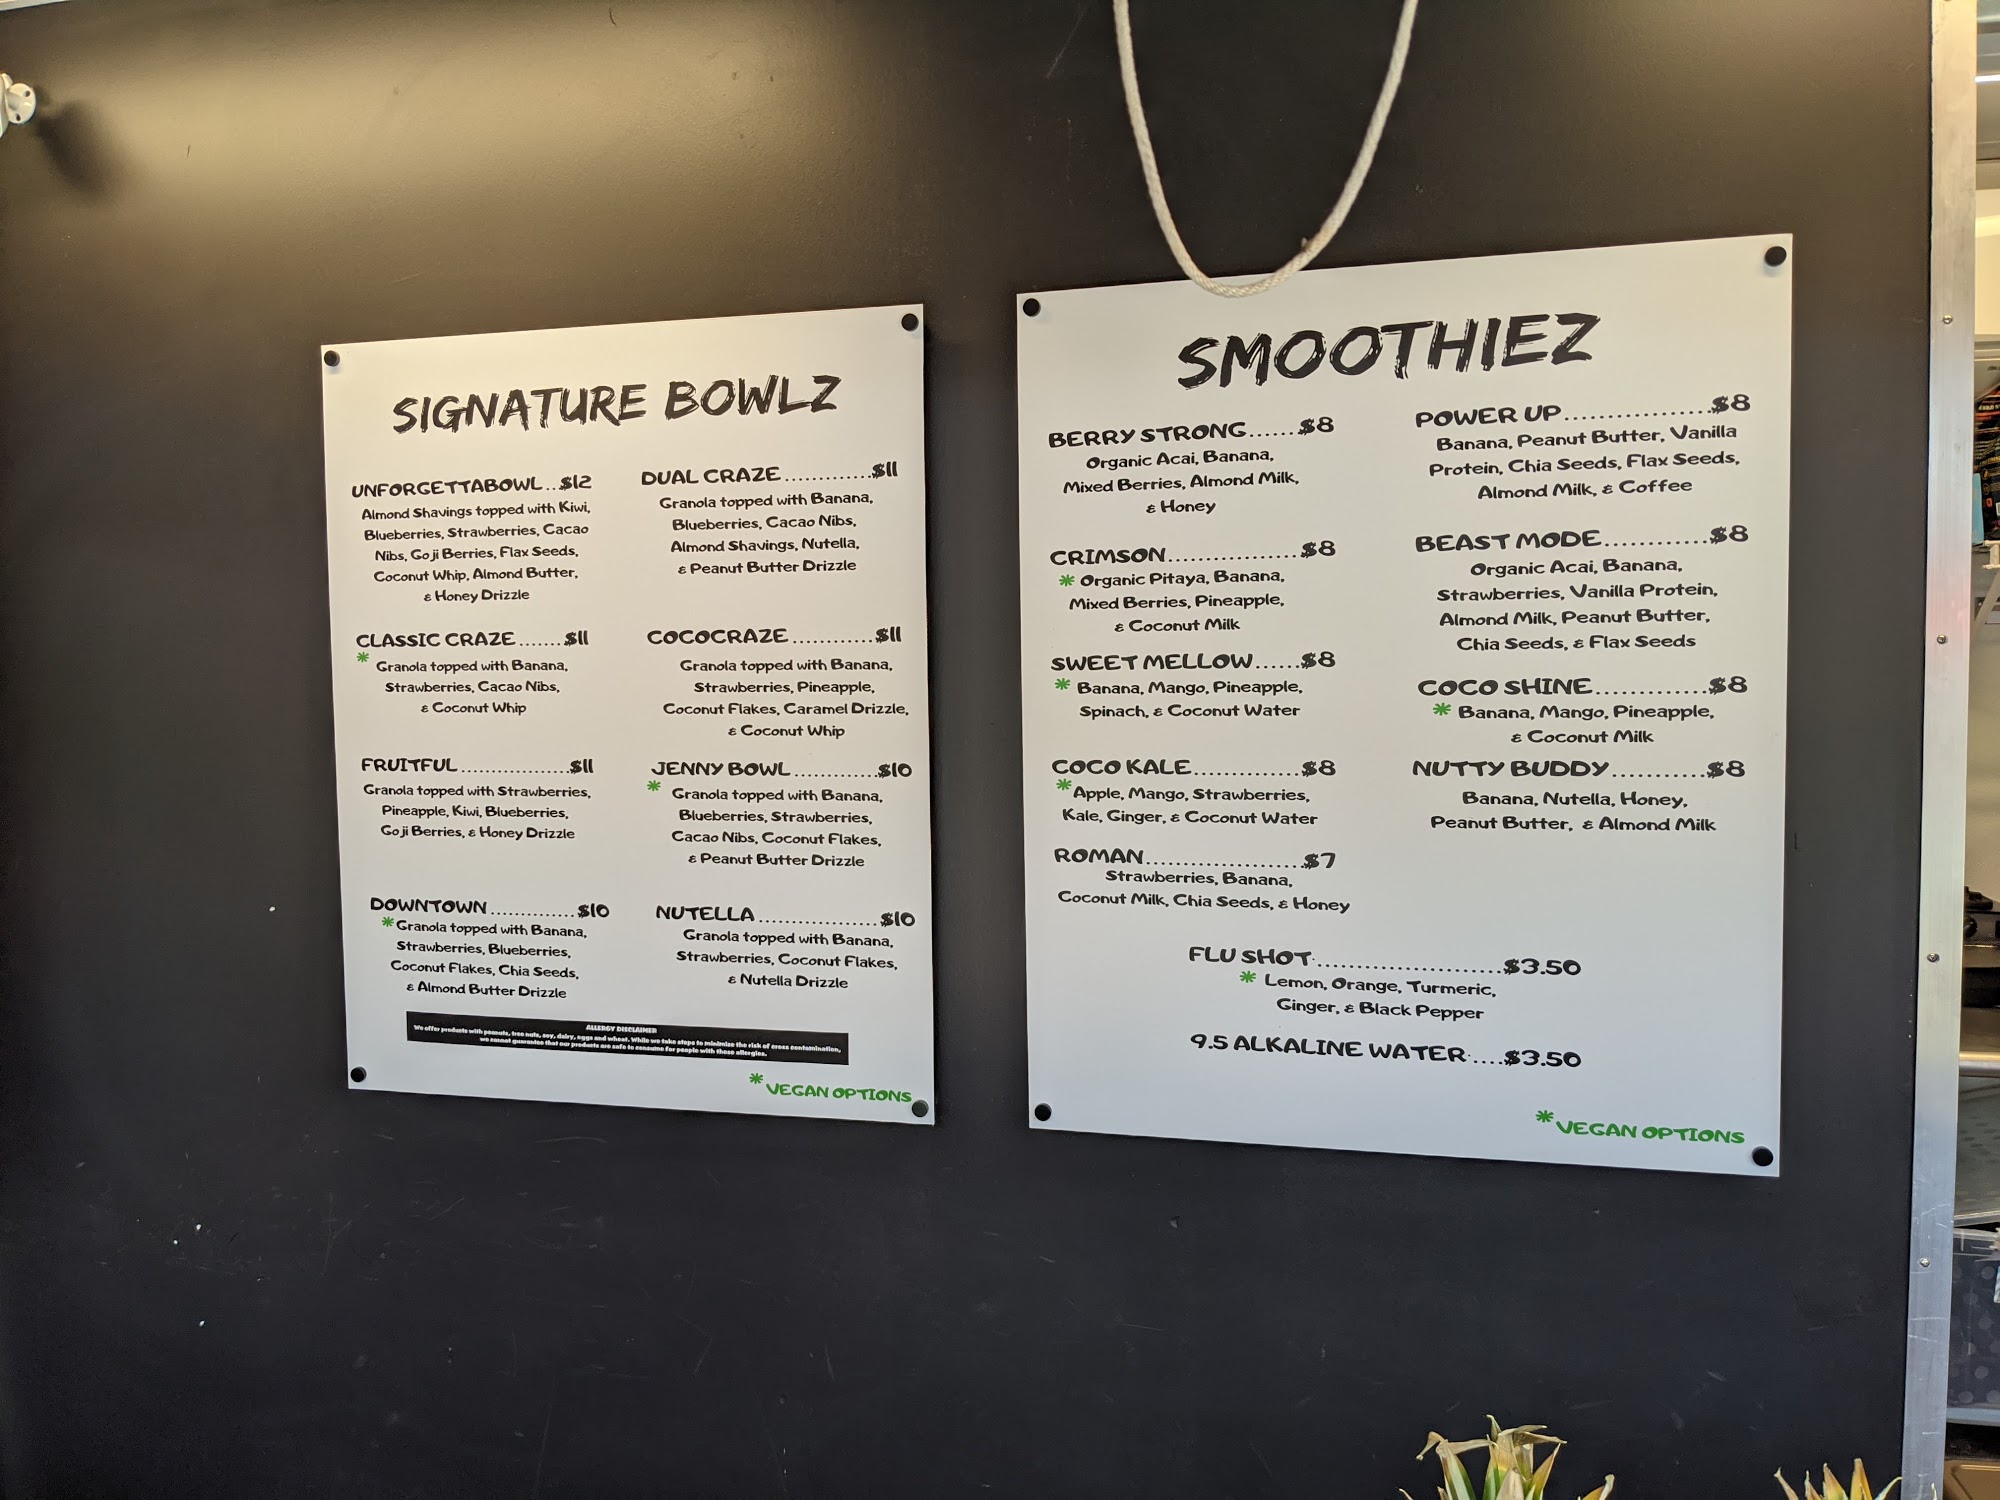 SIGNATURE BOWLZ
UNFORGETTABOWL..$12
Almond Shavings topped with Kiwi,
Blueberries, Strawberries, Cacao
Nibs, Goji Berries, Flax Seeds,
Coconut Whip, Almond Butter,
& Honey Drizzle
CLASSIC CRAZE.......$11
* Granola topped with Banana,
Strawberries, Cacao Nibs,
& Coconut Whip
FRUITFUL..................$11
Granola topped with Strawberries,
Pineapple, Kiwi, Blueberries,
Goji Berries, & Honey Drizzle
DOWNTOWN..............$10
* Granola topped with Banana,
Strawberries, Blueberries,
Coconut Flakes, Chia Seeds,
& Almond Butter Drizzle
DUAL CRAZE.............$11
Granola topped with Banana,
Blueberries, Cacao Nibs,
Almond Shavings, Nutella,
& Peanut Butter Drizzle
COCOCRAZE............$11
Granola topped with Banana,
Strawberries, Pineapple,
Coconut Flakes, Caramel Drizzle,
& Coconut Whip
JENNY BOWL............$10
* Granola topped with Banana,
Blueberries, Strawberries,
Cacao Nibs, Coconut Flakes,
& Peanut Butter Drizzle
NUTELLA.................$10
Granola topped with Banana,
Strawberries, Coconut Flakes,
& Nutella Drizzle
ALLERGY DISCLAIMER
We offer products with peanuts, tree nuts, soy, dairy, eggs and wheat. While we take steps to minimize the risk of cross contamination,
we cannot guarantee that our products are safe to consume for people with these allergies.
*VEGAN OPTIONS
SMOOTHIEZ
BERRY STRONG......$8
Organic Acai, Banana,
Mixed Berries, Almond Milk,
& Honey
CRIMSON.................$8
* Organic Pitaya, Banana,
Mixed Berries, Pineapple,
& Coconut Milk
SWEET MELLOW......$8
* Banana, Mango, Pineapple,
Spinach, & Coconut Water
COCO KALE..............$8
*Apple, Mango, Strawberries,
Kale, Ginger, & Coconut Water
ROMAN.....................$7
Strawberries, Banana,
Coconut Milk, Chia Seeds, & Honey
POWER UP.................$8
Banana, Peanut Butter, Vanilla
Protein, Chia Seeds, Flax Seeds,
Almond Milk, & Coffee
BEAST MODE............$8
Organic Acai, Banana,
Strawberries, Vanilla Protein,
Almond Milk, Peanut Butter,
Chia Seeds, & Flax Seeds
COCO SHINE.............$8
* Banana, Mango, Pineapple,
& Coconut Milk
NUTTY BUDDY...........$8
Banana, Nutella, Honey,
Peanut Butter, & Almond Milk
FLU SHOT........................$3.50
* Lemon, Orange, Turmeric,
Ginger, & Black Pepper
9.5 ALKALINE WATER.....$3.50
*VEGAN OPTIONS